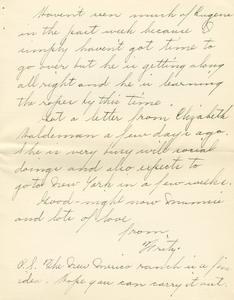 Haven't seen much of Eugene
in the past week because I
simply haven't got time to
go over but he is getting along
all right and he is learning
the ropes by this time.
Got a letter from Elizabeth
Haldeman a few days ago.
She is very busy with social
doings and also expects to
go to New York in a few weeks.
Good-night now Mummie
and lots of love
from,
Fritz.
P.S. The New Mexico ranch is a fine
idea. Hope you can carry it out.